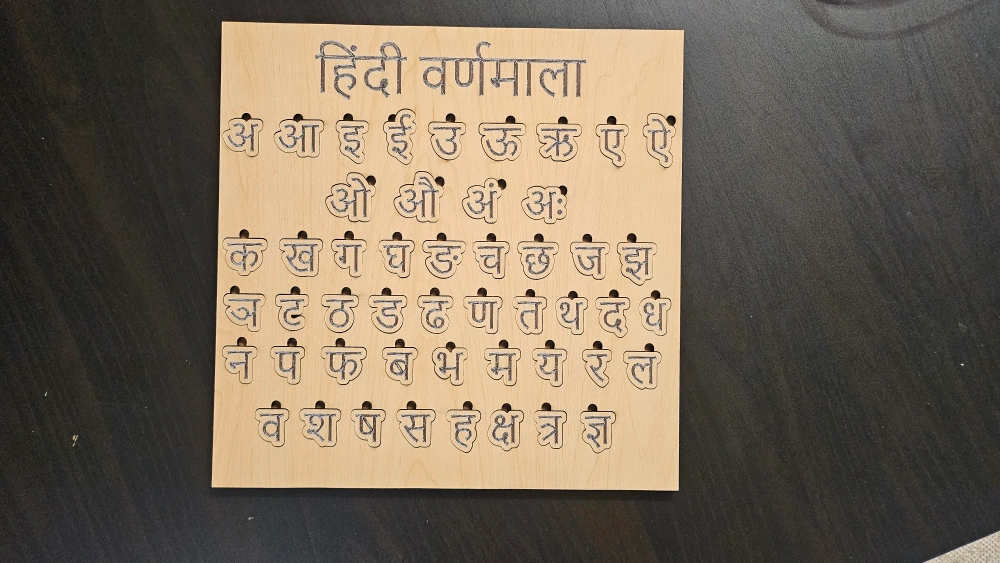 हिंदी वर्णमाला
अ आ इ ई उ ऊ ऋ ए ऐ
ओ औ अं अः
क ख ग घ ङ च छ ज झ
ञ ट ठ ड ढ ण त थ द ध
न प फ ब भ म य र ल
व श ष स ह क्ष त्र ज्ञ